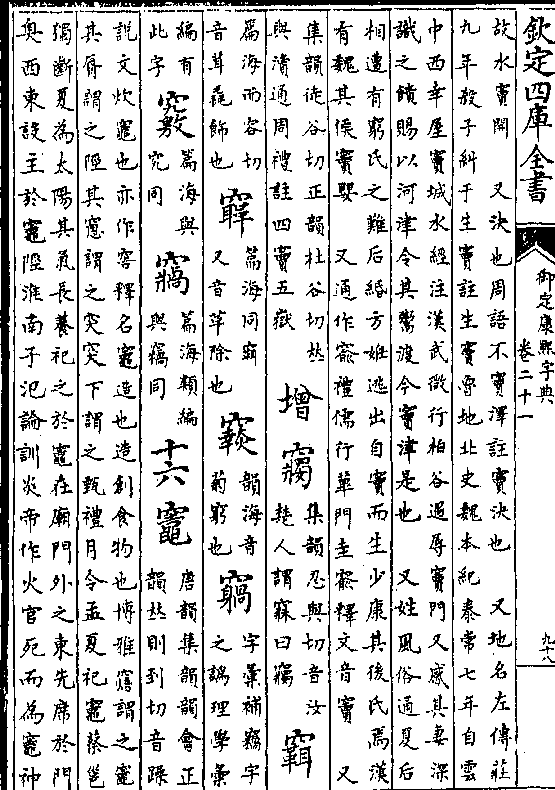 欽定四庫全書
御定康熙字典
卷二十一
九十八
故水竇開 又決也周語不竇澤註竇決也 又地名左傳莊
九年殺子糾于生竇註生竇魯地北史魏本紀泰常七年自雲
中西幸屋竇城水經注漢武微行柏谷遇辱竇門又感其妻深
識之饋賜以河津令其鬻渡今竇津是也 又姓風俗通夏后
相遭有窮氏之難后緡方娠逃出自竇而生少康其後氏焉漢
有魏其侯竇嬰 又通作窬禮儒行篳門圭窬釋文音竇 又
集韻徒谷切正韻杜谷切𠀤
與瀆通周禮註四竇五嶽 增 集韻忍與切音汝
楚人謂寐曰
篇海而容切
音茸毳飾也 篇海同
又音華除也 韻海音
菊窮也 字彙補竊字
之譌理學彙
編有
此字 竅 篇海與
究同 篇海類編
與竊同 十六 竈 唐韻集韻韻會正
韻𠀤則到切音躁
說文炊竈也亦作窖釋名竈造也造創食物也博雅窯謂之竈
其脣謂之陘其窻謂之突突下謂之甄禮月令孟夏祀竈蔡邕
獨斷夏為太陽其氣長養祀之於竈在廟門外之東先席於門
奧西東設主於竈陘淮南子氾論訓炎帝作火官死而為竈神